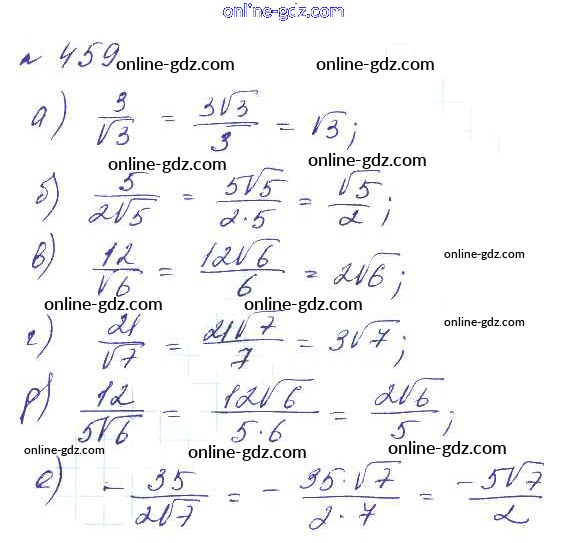 online-gdz.com
№ 459
online-gdz.com online-gdz.com
а) 3/√3 = 3√3/3 = √3;
online-gdz.com online-gdz.com
б) 5/2√5 = 5√5/2·5 = √5/2;
online-gdz.com online-gdz.com
в) 12/√6 = 12√6/6 = 2√6;
online-gdz.com
online-gdz.com online-gdz.com
г) 21/√7 = 21√7/7 = 3√7;
online-gdz.com
online-gdz.com online-gdz.com
д) 12/5√6 = 12√6/5·6 = 2√6/5;
online-gdz.com online-gdz.com online-gdz.com
е) -35/2√7 = -35·√7/2·7 = -5√7/2